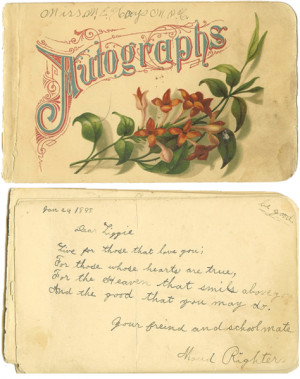 Miss M
Autographs
Jan 29 1
be good
Dear Lizzie
Live for those that love you;
For those whose hearts are true,
For the Heaven that smils above you
And the good that you may do.
Your freind and schoolmate
Maud Righter